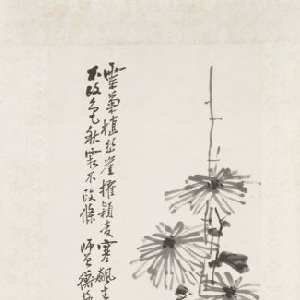 靈菊植幽崖擢穎凌寒飆
不改色秋霜不改條 師曾衡